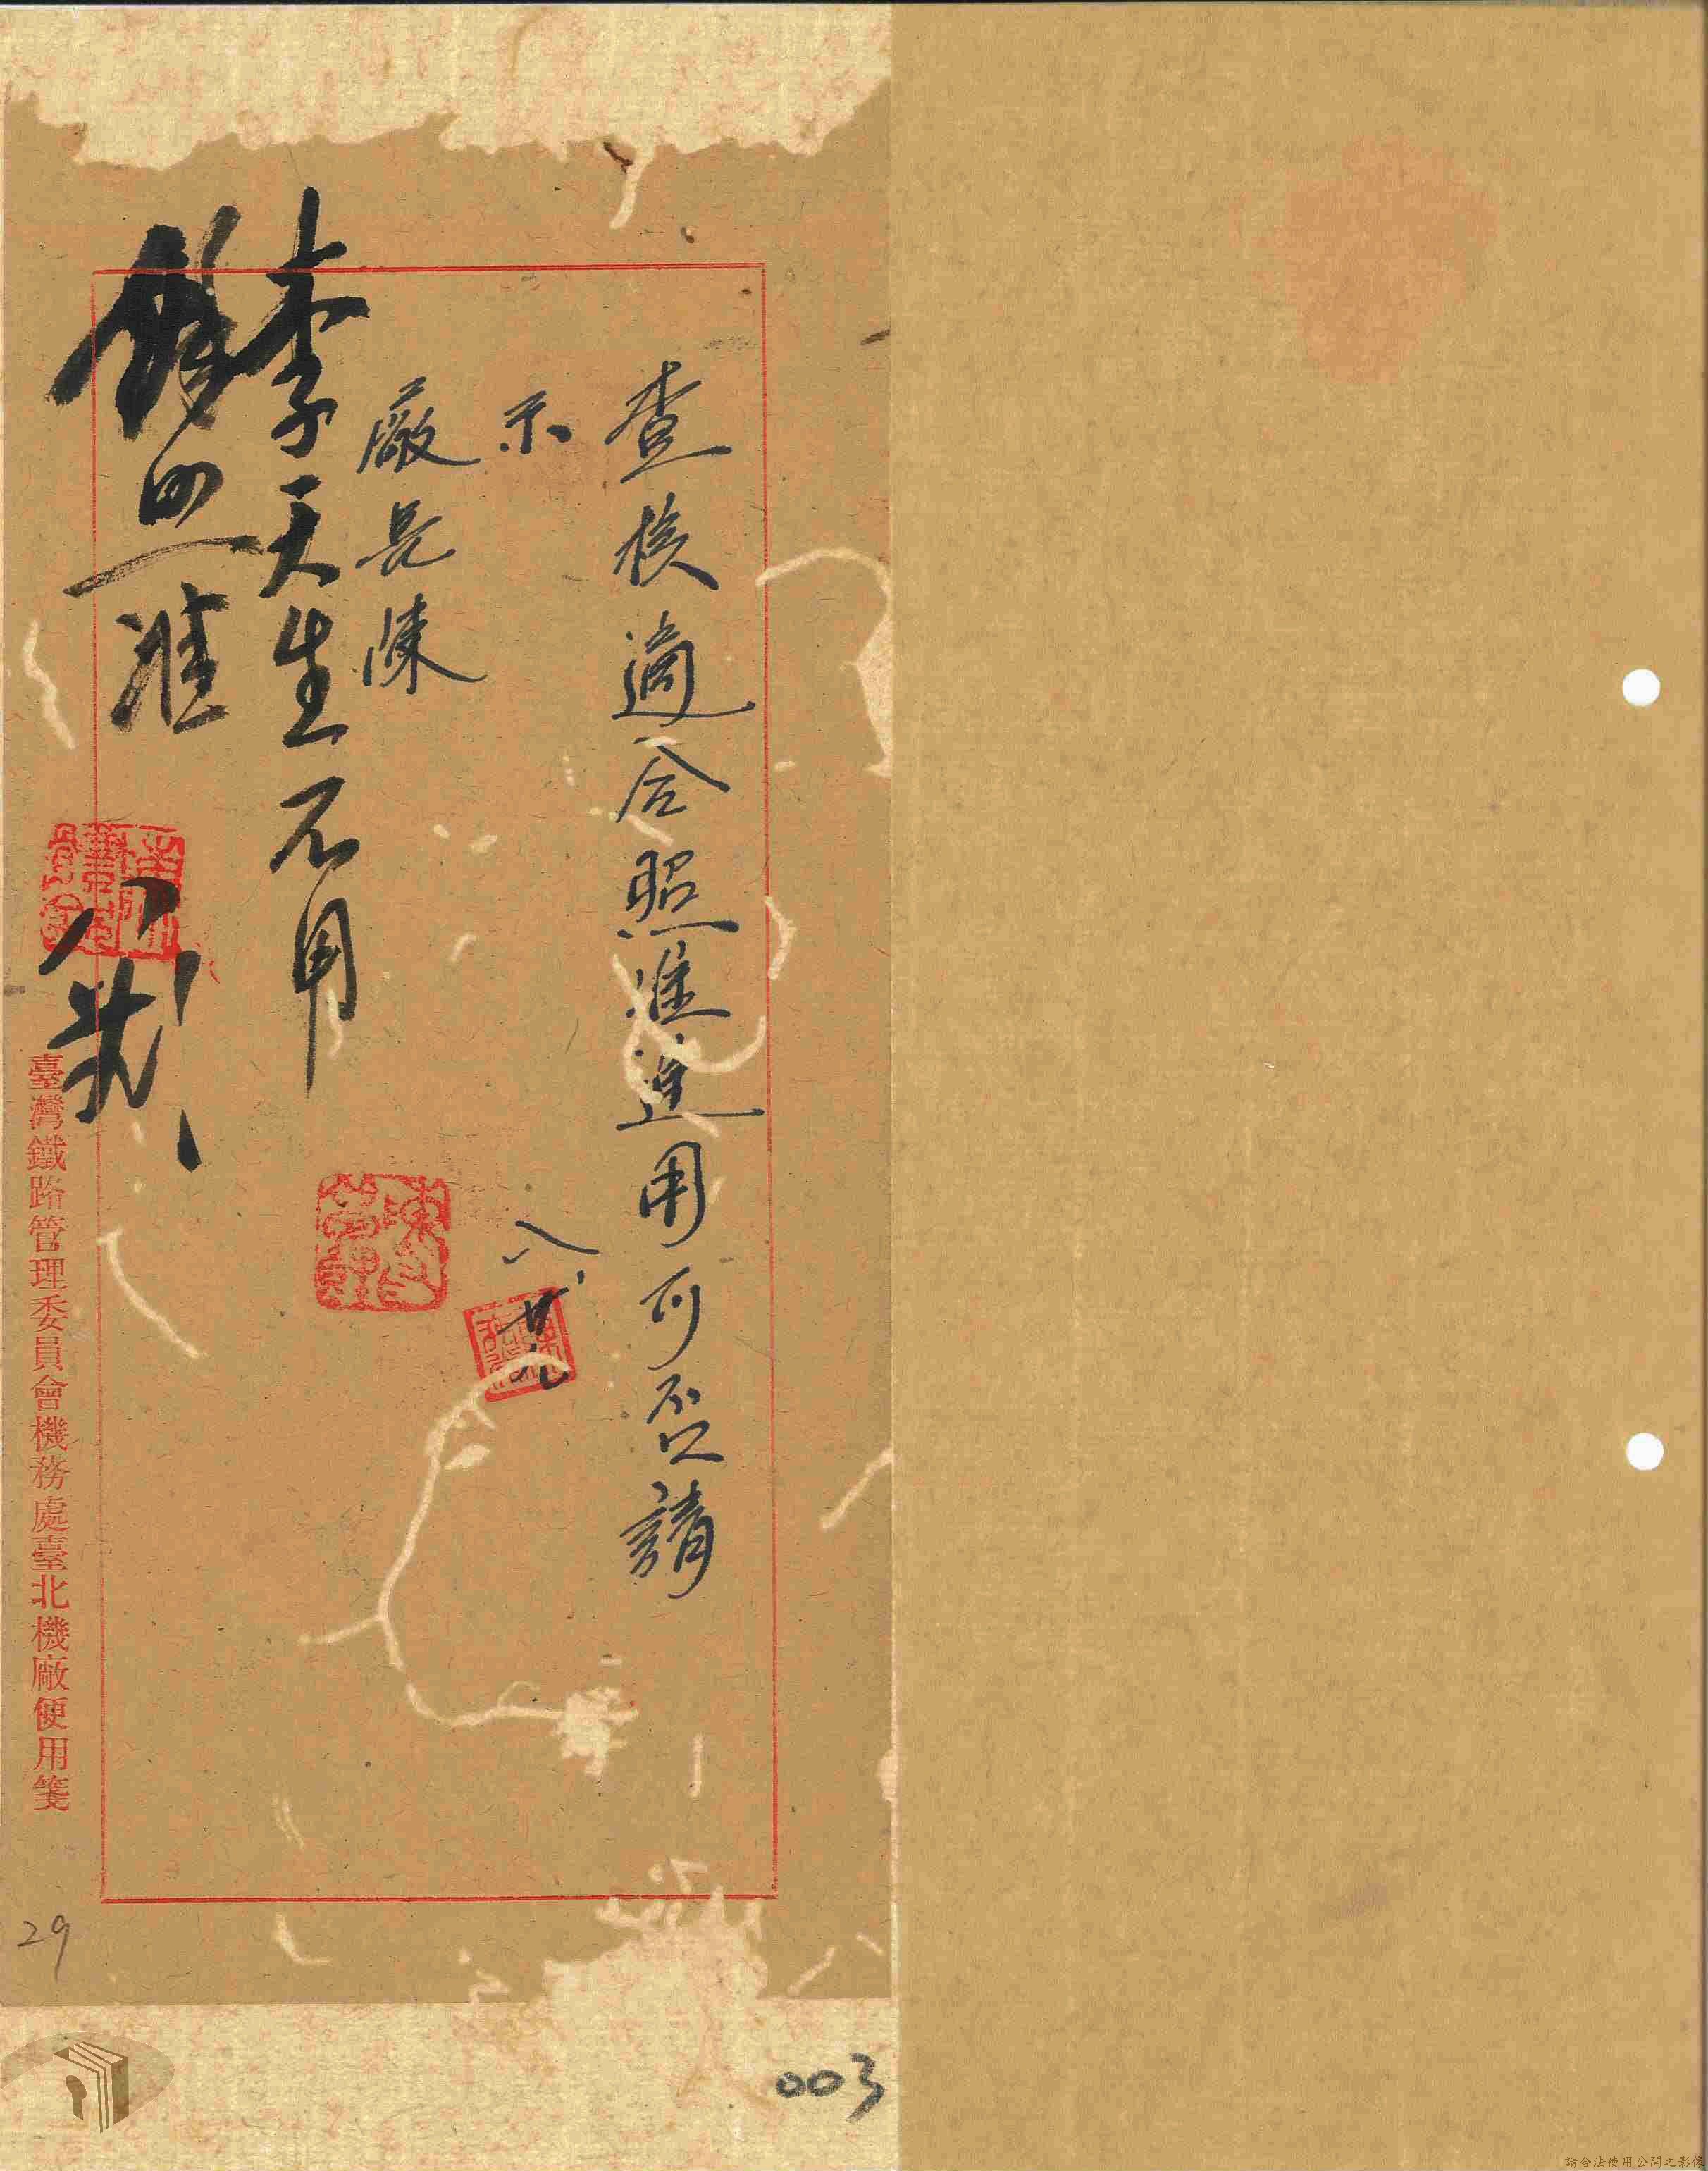 查核適合照准進用可否請
示
八、廿九
廠長陳
李天生不用
餘照准
臺灣鐵路管理委員會機務處臺北機廠便用箋
29
003
請合法使用公開之影像